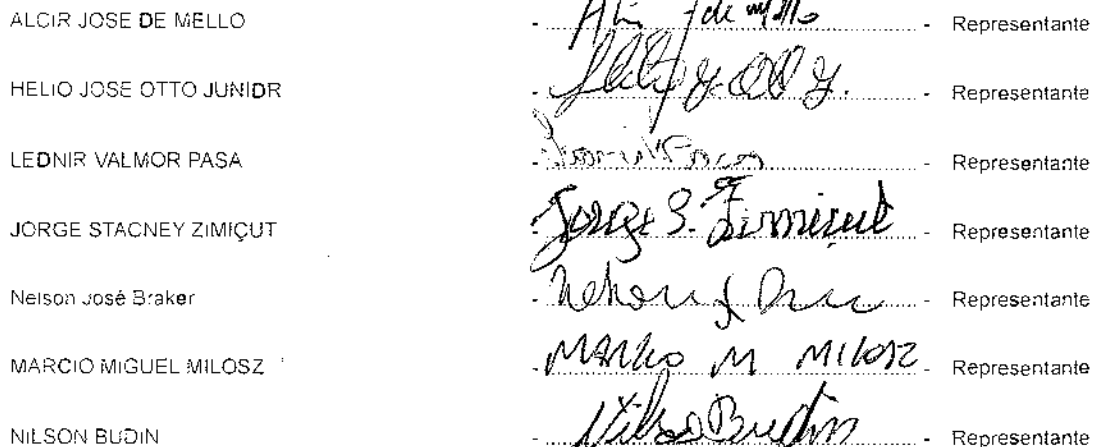 ALCIR JOSE DE MELLO - Alcir J de Mello - Representante
HELIO JOSE OTTO JUNIDR - - Representante
LEDNIR VALMOR PASA - - Representante
JORGE STACNEY ZIMIÇUT - Jorge S. Zimiçut - Representante
Nelson José Braker - - Representante
MARCIO MIGUEL MILOSZ - MARCIO M MILOSZ - Representante
NILSON BUDIN - Nilson Budin - Representante